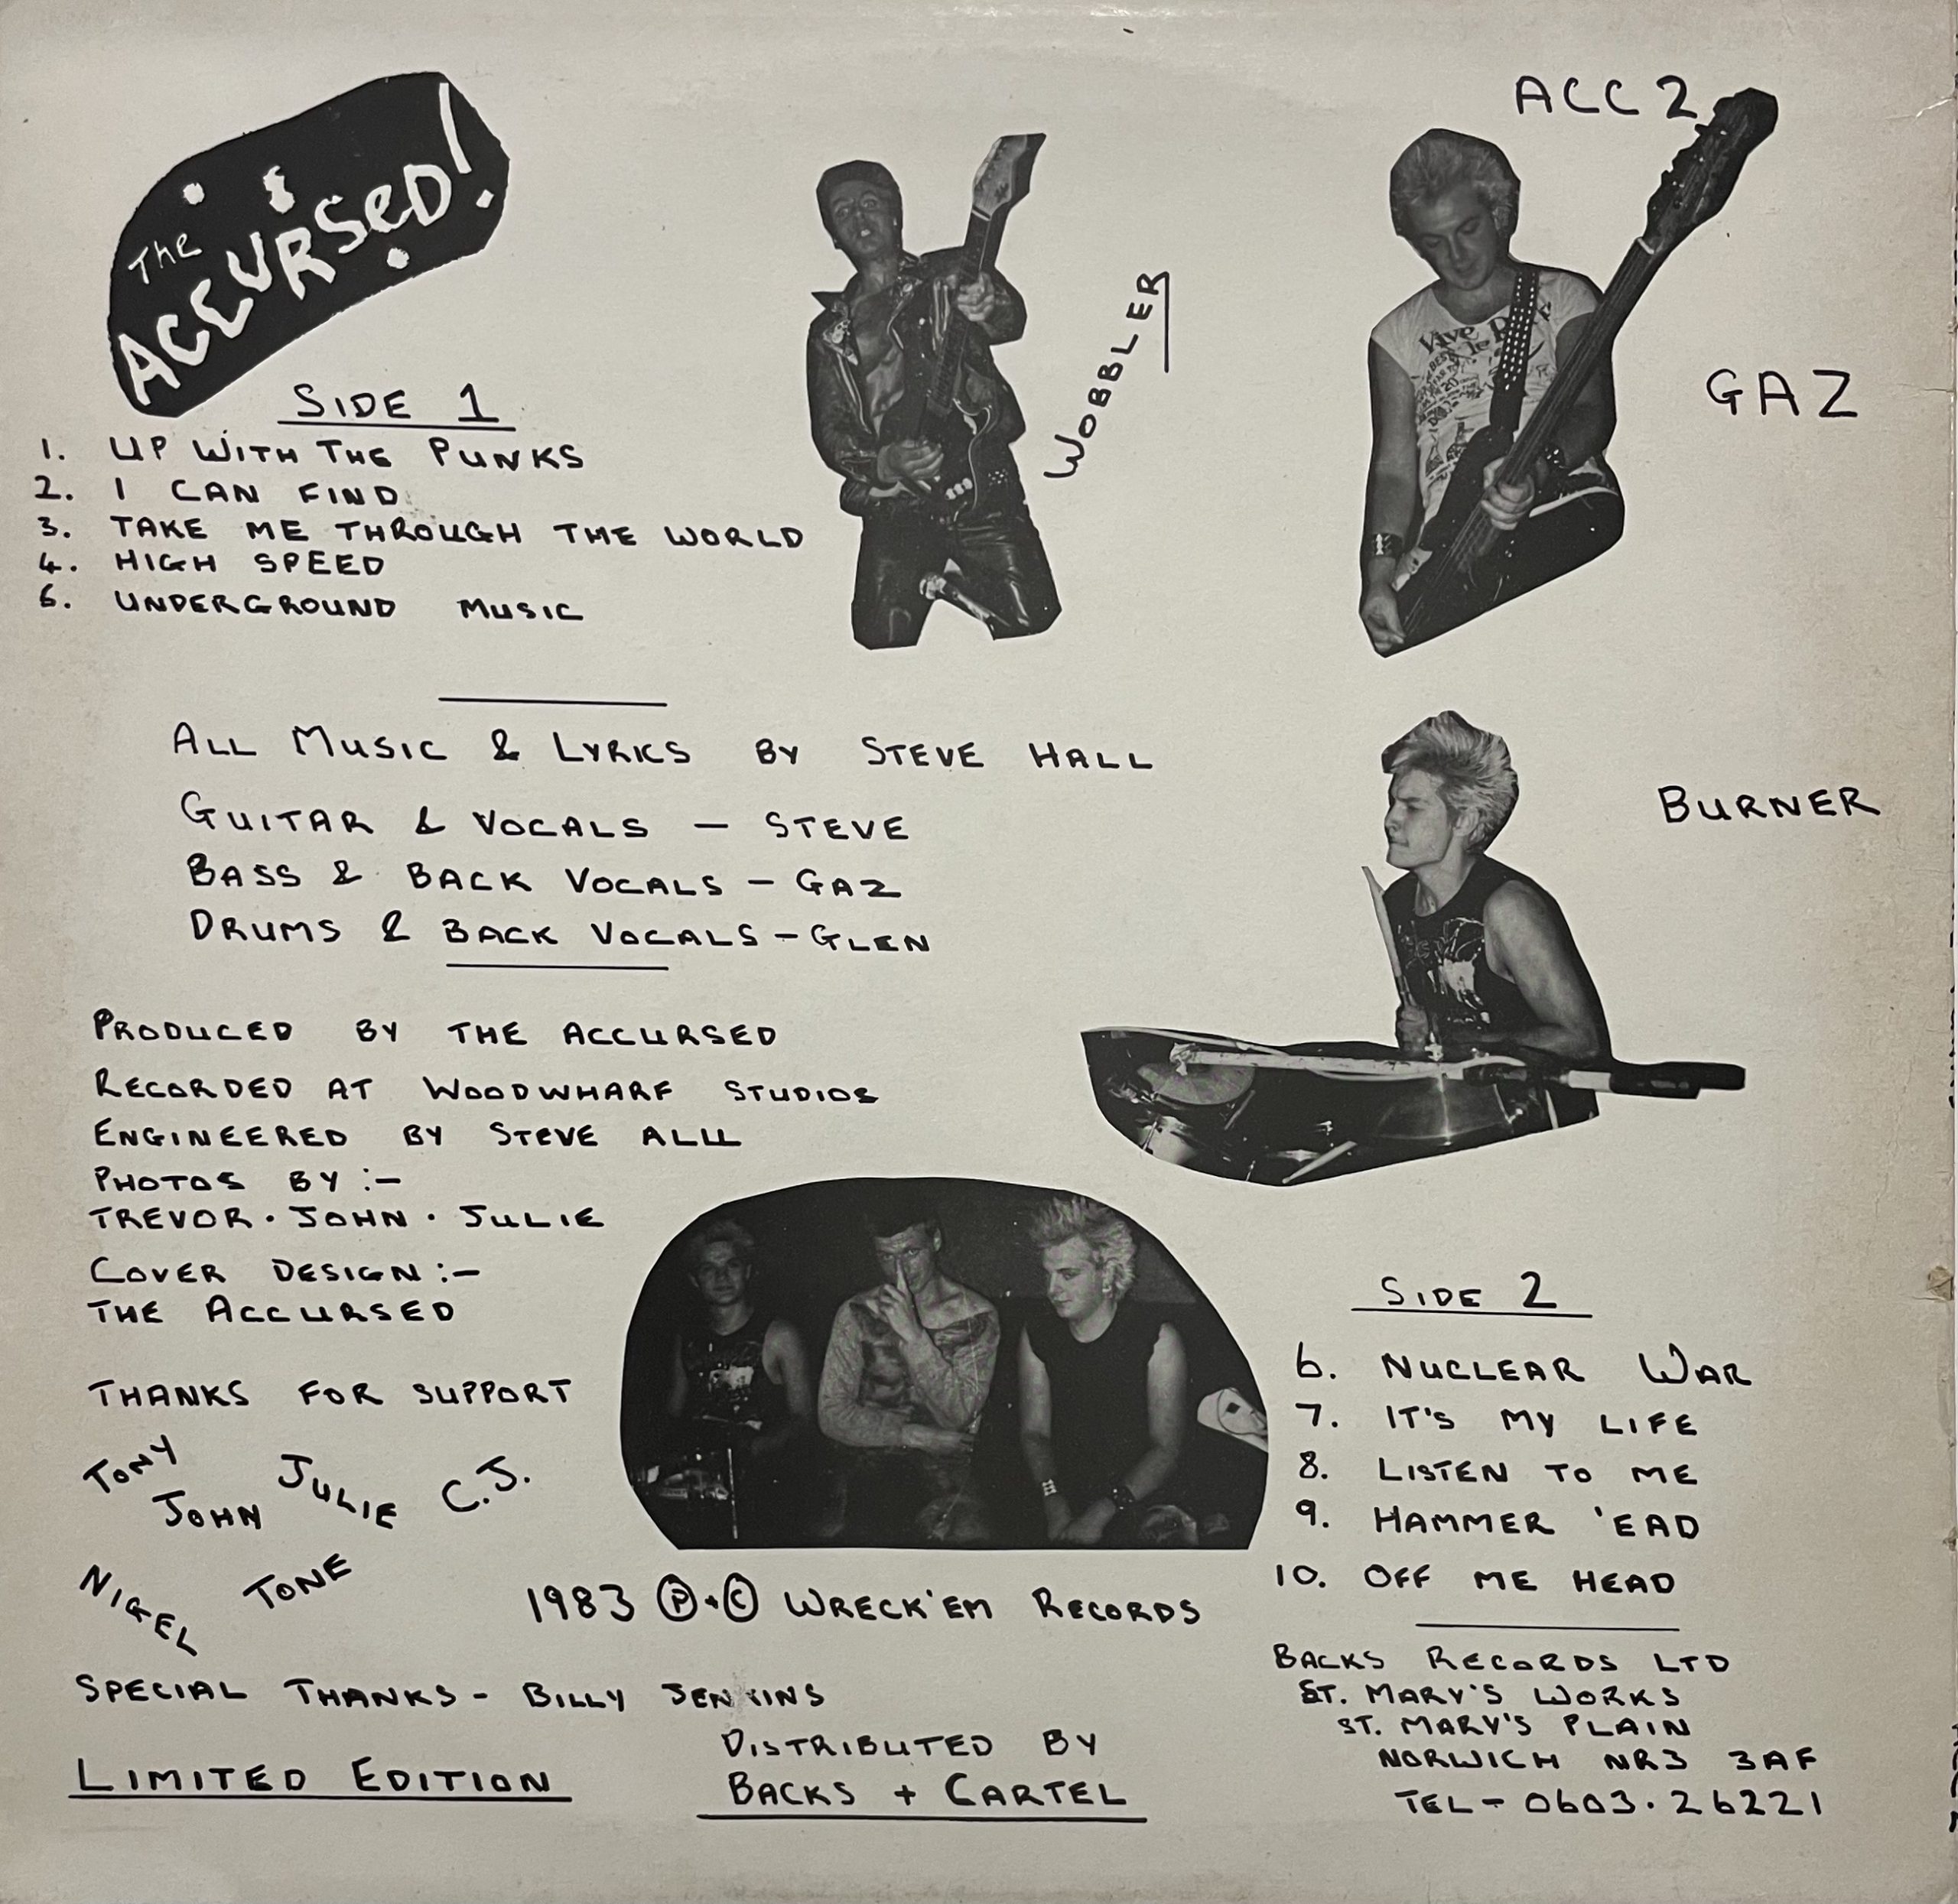 ACC 2
The
ACCURSED!
WOBBLER
GAZ
Vive
le
SIDE 1
1. UP WITH THE PUNKS
2. I CAN FIND
3. TAKE ME THROUGH THE WORLD
4. HIGH SPEED
5. UNDERGROUND MUSIC
ALL MUSIC & LYRICS BY STEVE HALL
GUITAR & VOCALS – STEVE
BASS & BACK VOCALS – GAZ
DRUMS & BACK VOCALS – GLEN
BURNER
PRODUCED BY THE ACCURSED
RECORDED AT WOODWHARF STUDIOS
ENGINEERED BY STEVE
PHOTOS BY :–
TREVOR · JOHN · JULIE
COVER DESIGN :–
THE ACCURSED
THANKS FOR SUPPORT
TONY
JOHN
JULIE
C.J.
NIGEL
TONE
SPECIAL THANKS - BILLY JENKINS
LIMITED EDITION
1983 Ⓟ + © WRECK'EM RECORDS
DISTRIBUTED BY
BACKS + CARTEL
SIDE 2
6. NUCLEAR WAR
7. IT'S MY LIFE
8. LISTEN TO ME
9. HAMMER 'EAD
10. OFF ME HEAD
BACKS RECORDS LTD
ST. MARY'S WORKS
ST. MARY'S PLAIN
NORWICH NR3 3AF
TEL – 0603.26221